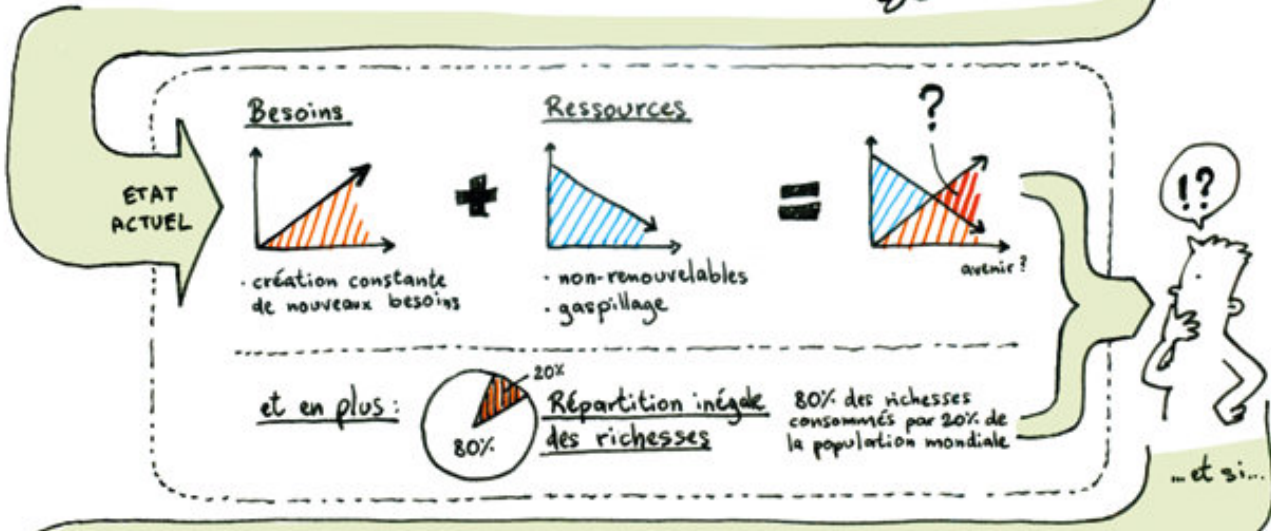 Besoins
Ressources
?
ETAT
ACTUEL
+
=
!?
· création constante
de nouveaux besoins
· non-renouvelables
· gaspillage
avenir ?
et en plus :
20%
80%
Répartition inégale
des richesses
80% des richesses
consommés par 20% de
la population mondiale
... et si...